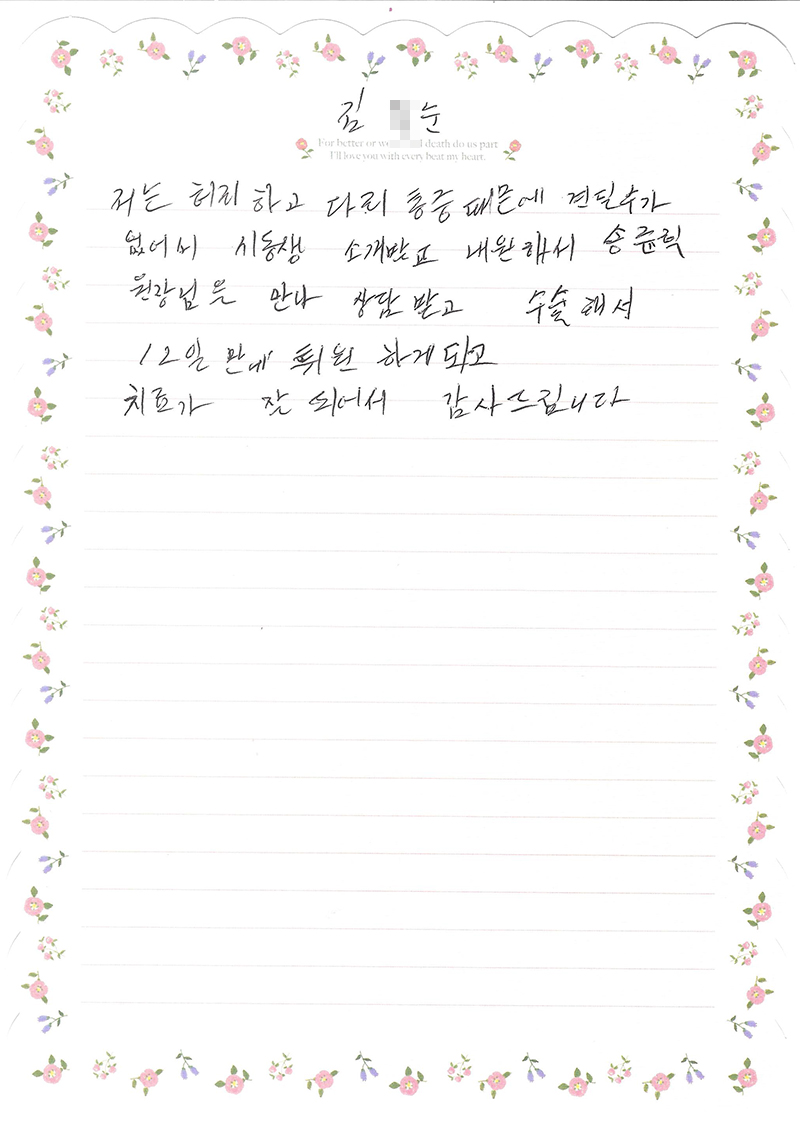 김 순
For better or wo death do us part
I'll love you with every beat my heart.
저는 허리 하고 다리 통증 때문에 견딜수가
없어서 시동생 소개받고 내원해서 송윤혁
원장님을 만나 상담 받고 수술해서
12일 만에 퇴원 하게 되고
치료가 잘 되어서 감사드립니다